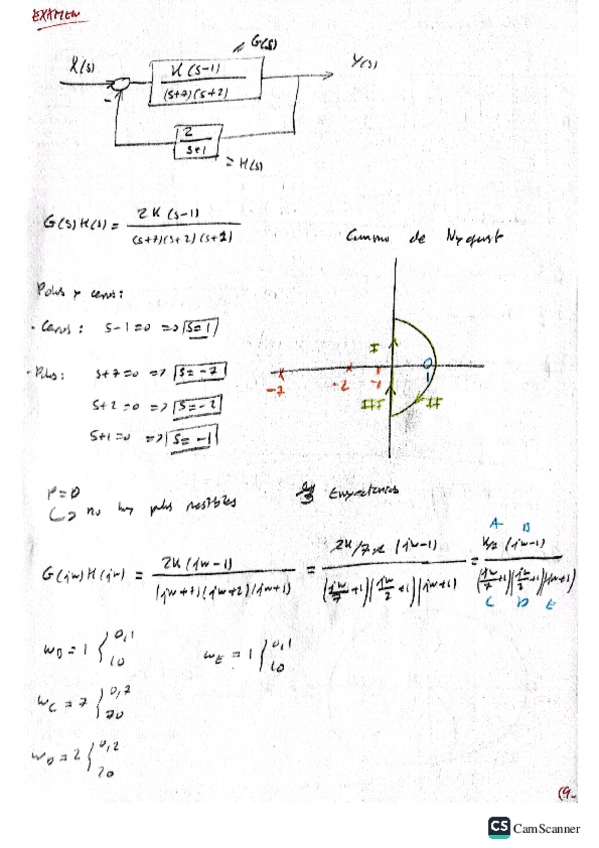 EXAMEN
= G(s)
X(s)
K(s-1)
(s+7)(s+2)
Y(s)
-
2
s+1
= H(s)
G(s)H(s) = 2K(s-1)
(s+7)(s+2)(s+1)
Camino de Nyquist
Polos y ceros:
- Ceros: s-1=0 => s=1
- Polos: s+7=0 => s=-7
s+2=0 => s=-2
s+1=0 => s=-1
I
-7 -2 -1 1
III II
P=0
no hay polos
G(jw)H(jw) = 2K(jw-1) / (jw+7)(jw+2)(jw+1) = 2K/7·2 (jw-1) / (jw/7+1)(jw/2+1)(jw+1) = K/7 (jw-1) / (jw/7+1)(jw/2+1)(jw+1)
A B
C D E
w_B = 1 { 0,1 10
w_E = 1 { 0,1 10
w_C = 7 { 0,7 70
w_D = 2 { 0,2 20
CS CamScanner